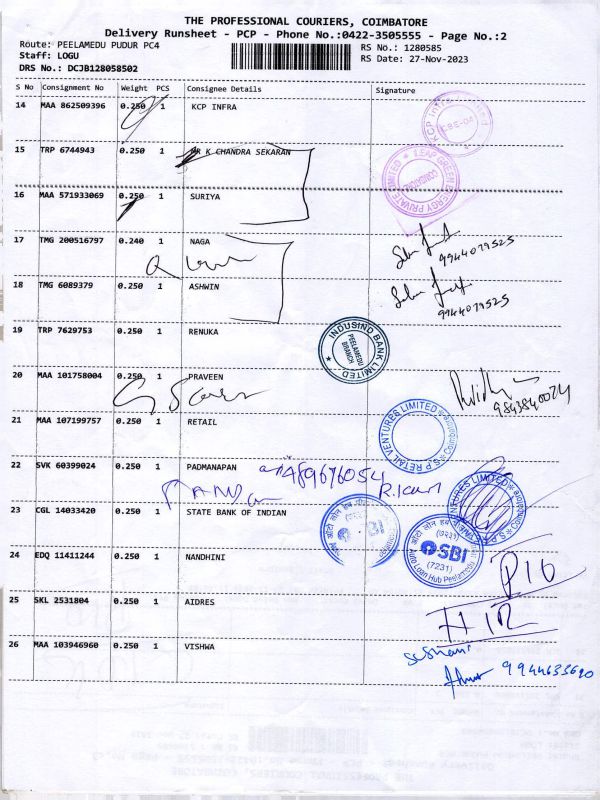 THE PROFESSIONAL COURIERS, COIMBATORE
Delivery Runsheet - PCP - Phone No.:0422-3505555 - Page No.:2
Route: PEELAMEDU PUDUR PC4
RS No.: 1280585
Staff: LOGU
RS Date: 27-Nov-2023
DRS No.: DCJB128058502
S No Consignment No Weight PCS Consignee Details Signature
14 MAA 862509396 0.250 1 KCP INFRA
15 TRP 6744943 0.250 1 MR K CHANDRA SEKARAN
LEAP GREEN ENERGY PRIVATE LIMITED
16 MAA 571933069 0.250 1 SURIYA
17 TMG 200516797 0.240 1 NAGA
9944079525
18 TMG 6089379 0.250 1 ASHWIN
9944079525
19 TRP 7629753 0.250 1 RENUKA
INDUSIND BANK LIMITED
PEELAMEDU BRANCH
20 MAA 101758004 0.250 1 PRAVEEN
9843840024
21 MAA 107199757 0.250 1 RETAIL
S P RETAIL VENTURES LIMITED
Coimbatore
22 SVK 60399024 0.250 1 PADMANAPAN
23 CGL 14033420 0.250 1 STATE BANK OF INDIAN
SBI
(7231)
Auto Loan Hub Peelamedu
24 EDQ 11411244 0.250 1 NANDHINI
25 SKL 2531804 0.250 1 AIDRES
26 MAA 103946960 0.250 1 VISHWA
9944633690